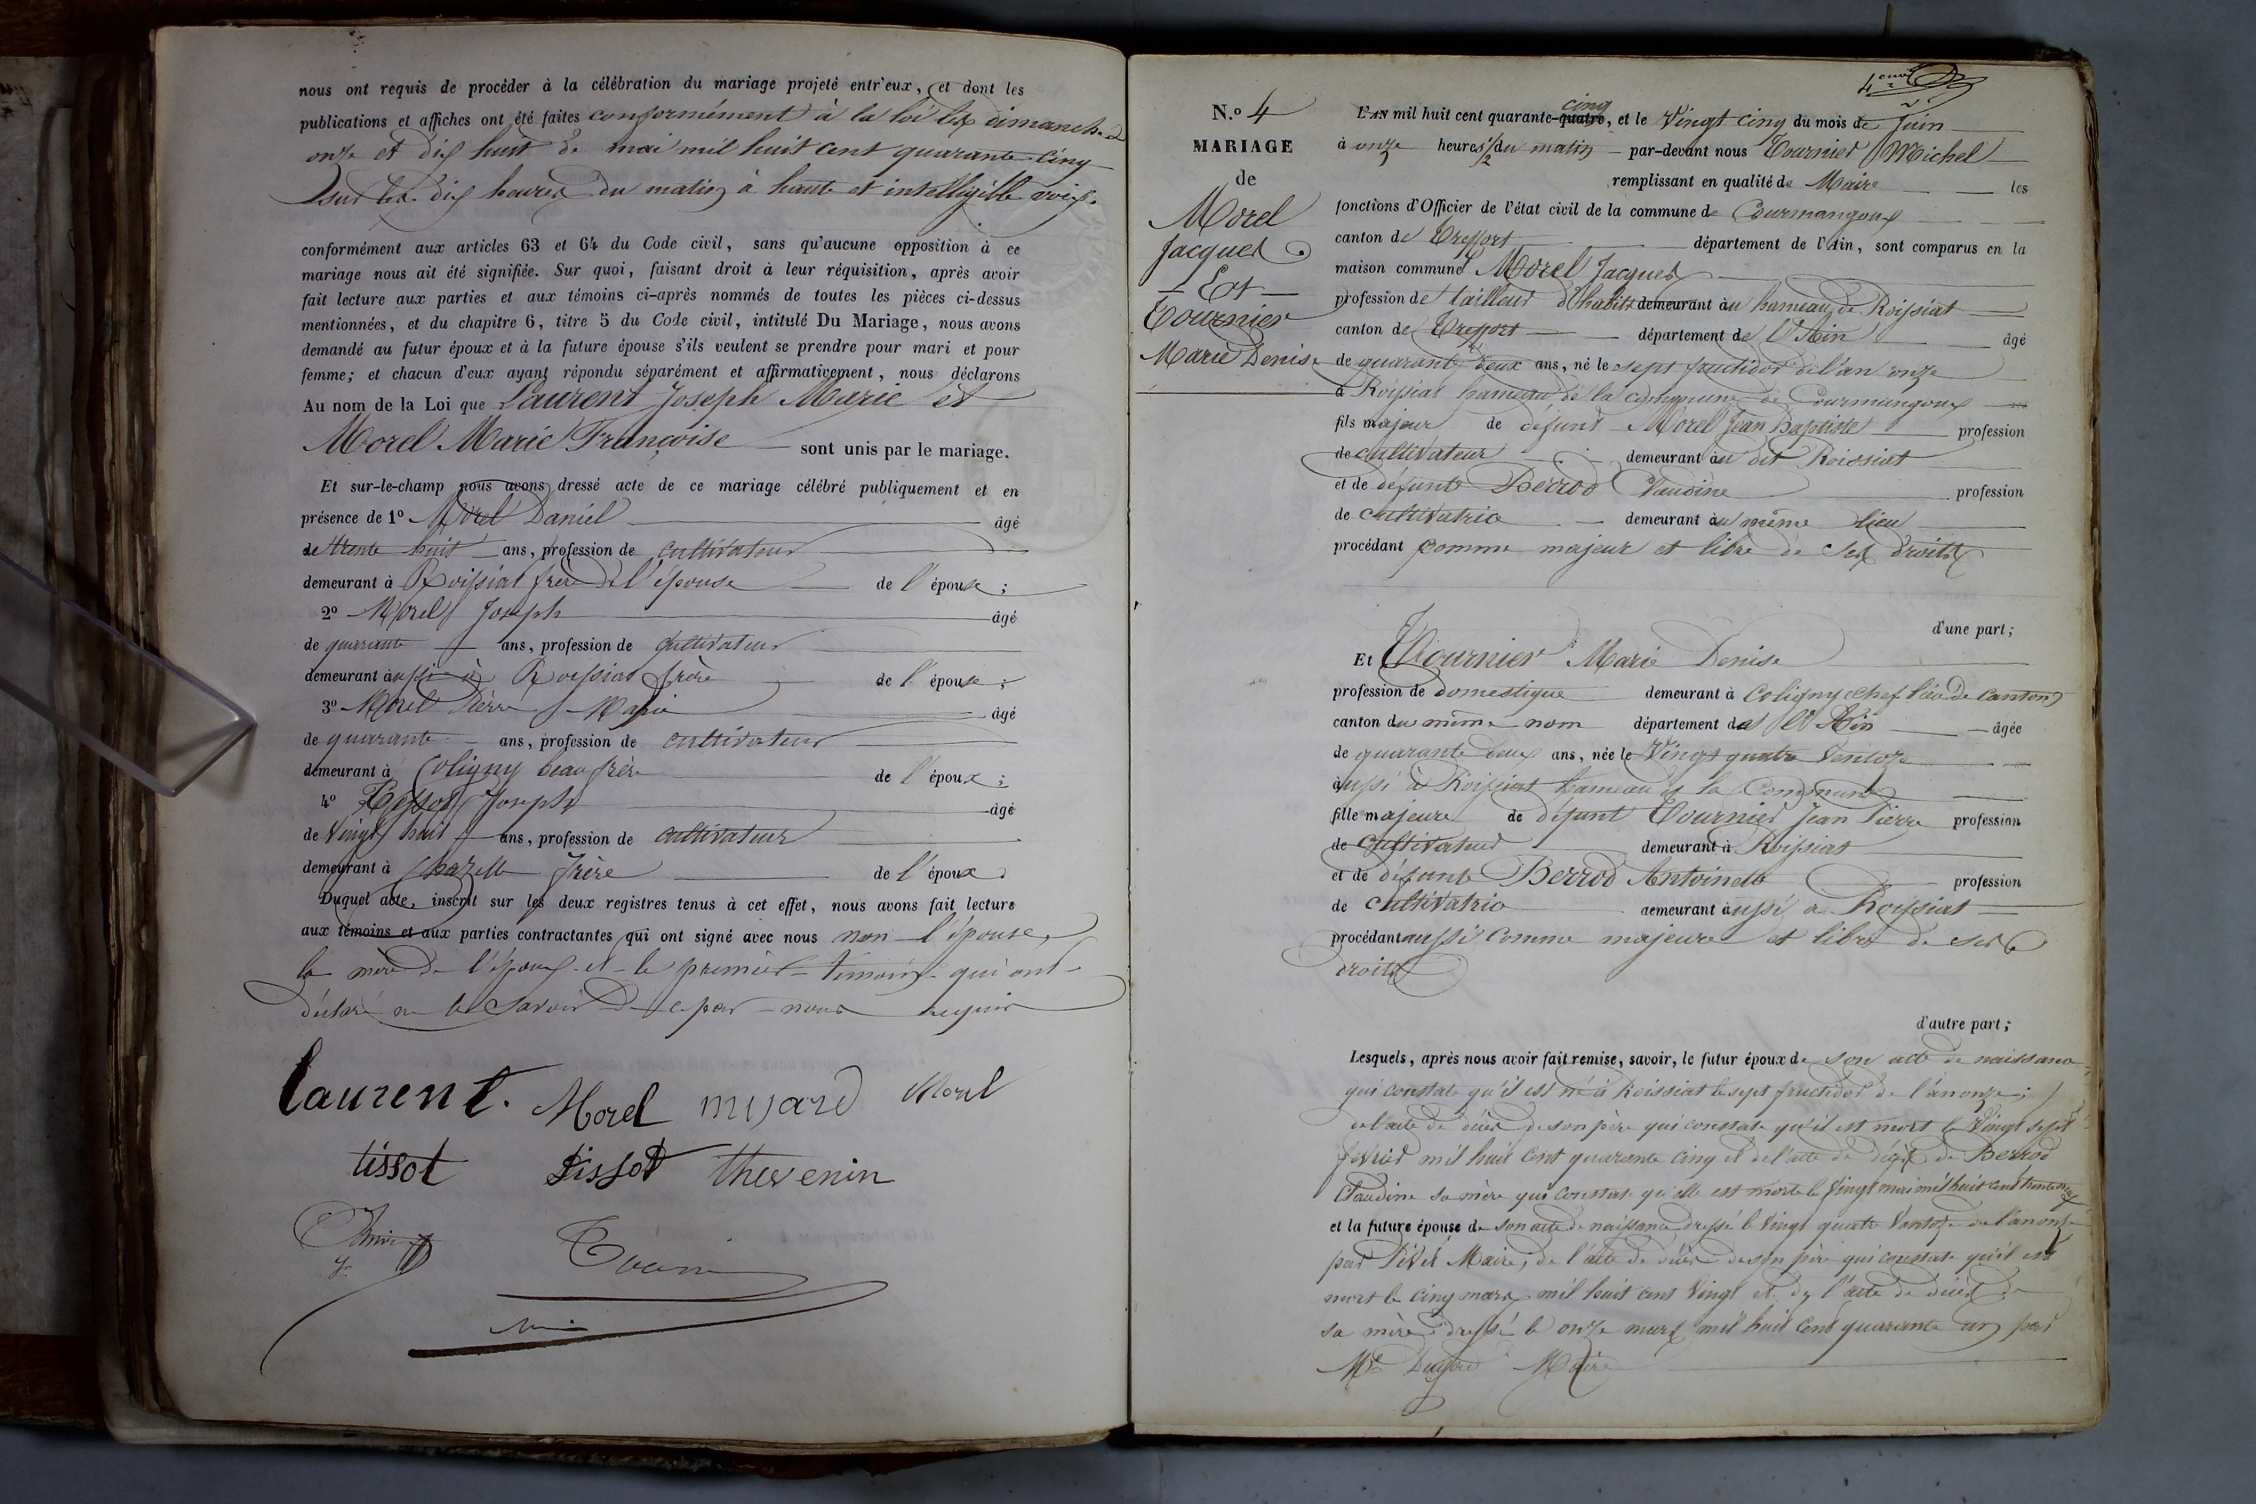 nous ont requis de procéder à la célébration du mariage projeté entr'eux, et dont les
publications et affiches ont été faites conformément à la loi les dimanches
onze et dix huit de mai mil huit cent quarante cinq
sur les dix heures du matin à haute et intelligible voix.
conformément aux articles 63 et 64 du Code civil, sans qu'aucune opposition à ce
mariage nous ait été signifiée. Sur quoi, faisant droit à leur réquisition, après avoir
fait lecture aux parties et aux témoins ci-après nommés de toutes les pièces ci-dessus
mentionnées, et du chapitre 6, titre 5 du Code civil, intitulé Du Mariage, nous avons
demandé au futur époux et à la future épouse s'ils veulent se prendre pour mari et pour
femme; et chacun d'eux ayant répondu séparément et affirmativement, nous déclarons
Au nom de la Loi que Laurent Joseph Marie et
Morel Marie Françoise sont unis par le mariage.
Et sur-le-champ nous avons dressé acte de ce mariage célébré publiquement et en
présence de 1º Morel Daniel âgé
de trente huit ans, profession de cultivateur
demeurant à Roissiat frère de l'épouse de l'épouse;
2º Morel Joseph âgé
de quarante ans, profession de cultivateur
demeurant aussi à Roissiat frère de l'épouse;
3º Morel Pierre Marie âgé
de quarante ans, profession de cultivateur
demeurant à Coligny beau frère de l'époux;
4º Tissot Joseph âgé
de vingt huit ans, profession de cultivateur
demeurant à frère de l'époux
Duquel acte, inscrit sur les deux registres tenus à cet effet, nous avons fait lecture
aux témoins et aux parties contractantes qui ont signé avec nous non l'épouse,
la mère de l'époux et le premier témoin qui ont
déclaré ne le savoir de ce par nous requis
Laurent. Morel Morel
tissot tissot thevenin
N.º 4
MARIAGE
de
Morel
Jacques
Et
Tournier
Marie Denise
L'AN mil huit cent quarante-quatre cinq, et le vingt cinq du mois de Juin
à onze heures 1/2 du matin par-devant nous Tournier Michel
remplissant en qualité de Maire les
fonctions d'Officier de l'état civil de la commune de Courmangoux
canton de Treffort département de l'Ain, sont comparus en la
maison commune Morel Jacques
profession de tailleur d'habits demeurant au hameau de Roissiat
canton de Treffort département de l'Ain âgé
de quarante deux ans, né le sept fructidor de l'an onze
à Roissiat hameau de la commune de Courmangoux
fils majeur de défunt Morel Jean Baptiste profession
de cultivateur demeurant au dit Roissiat
et de défunte Berrod Claudine profession
de cultivatrice demeurant au même lieu
procédant comme majeur et libre de ses droits
d'une part;
Et Tournier Marie Denise
profession de domestique demeurant à Coligny chef lieu de canton
canton du même nom département de l'Ain âgée
de quarante deux ans, née le vingt quatre ventose
aussi à Roissiat hameau de la commune
fille majeure de défunt Tournier Jean Pierre profession
de cultivateur demeurant à Roissiat
et de défunte Berrod Antoinette profession
de cultivatrice demeurant aussi à Roissiat
procédant aussi comme majeure et libre de ses
droits
d'autre part;
Lesquels, après nous avoir fait remise, savoir, le futur époux de son acte de naissance
qui constate qu'il est né à Roissiat le sept fructidor de l'an onze;
de l'acte de décès de son père qui constate qu'il est mort le vingt sept
février mil huit cent quarante cinq et de l'acte de décès de Berrod
Claudine sa mère qui constate qu'elle est morte le vingt mai mil huit cent
et la future épouse de son acte de naissance dressé le vingt quatre ventose de l'an onze
par Maire, de l'acte de décès de son père qui constate qu'il est
mort le cinq mars mil huit cent vingt et de l'acte de décès de
sa mère dressé le onze mars mil huit cent quarante un par
Mr Maire